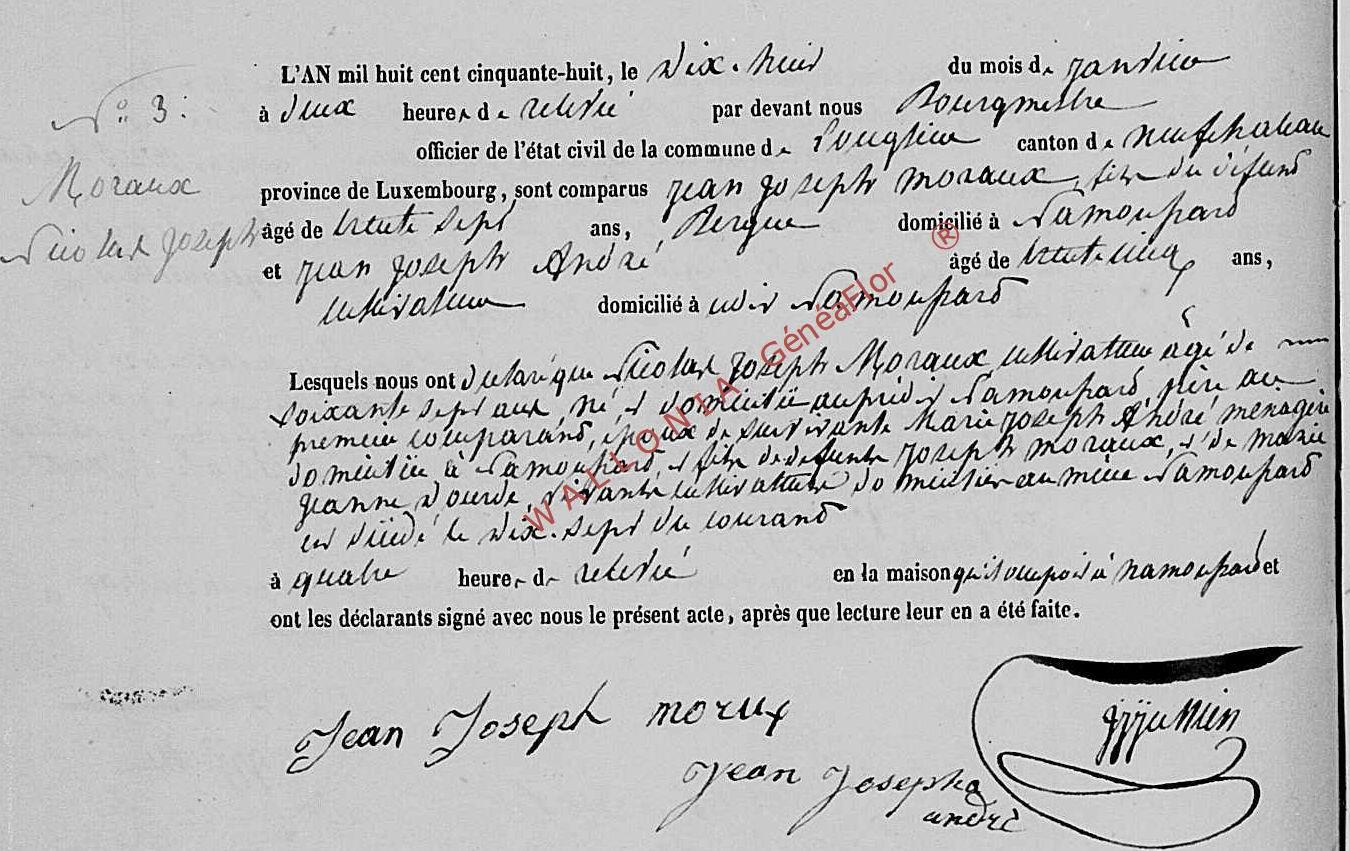 N° 3.
Moraux
Nicolas Joseph
L'AN mil huit cent cinquante-huit, le Dix-huit du mois de janvier
à deux heures de relevé par devant nous Bourgmestre
officier de l'état civil de la commune de Longlier canton de neufchateau
province de Luxembourg, sont comparus jean joseph moraux, fils du défunt
âgé de trente sept ans, Berger domicilié à Namoussard
et jean joseph André âgé de trente cinq ans,
cultivateur domicilié à Namoussard
Lesquels nous ont déclaré que Nicolas joseph Moraux cultivateur âgé de
soixante sept ans, né et domicilié au prédit Namoussard, père au
premier comparant, époux de survivante Marie joseph André ménagère
domiciliée à Namoussard, et fils de defunts joseph moraux, et de marie
jeanne vivants cultivateurs domiciliés au même Namoussard
est décédé le dix-sept du courant
à quatre heures de relevé en la maison qu'il occupoit à namoussard et
ont les déclarants signé avec nous le présent acte, après que lecture leur en a été faite.
Jean Joseph morux
Jean Joseph
andré
WALLONIA GénéaFlor ®